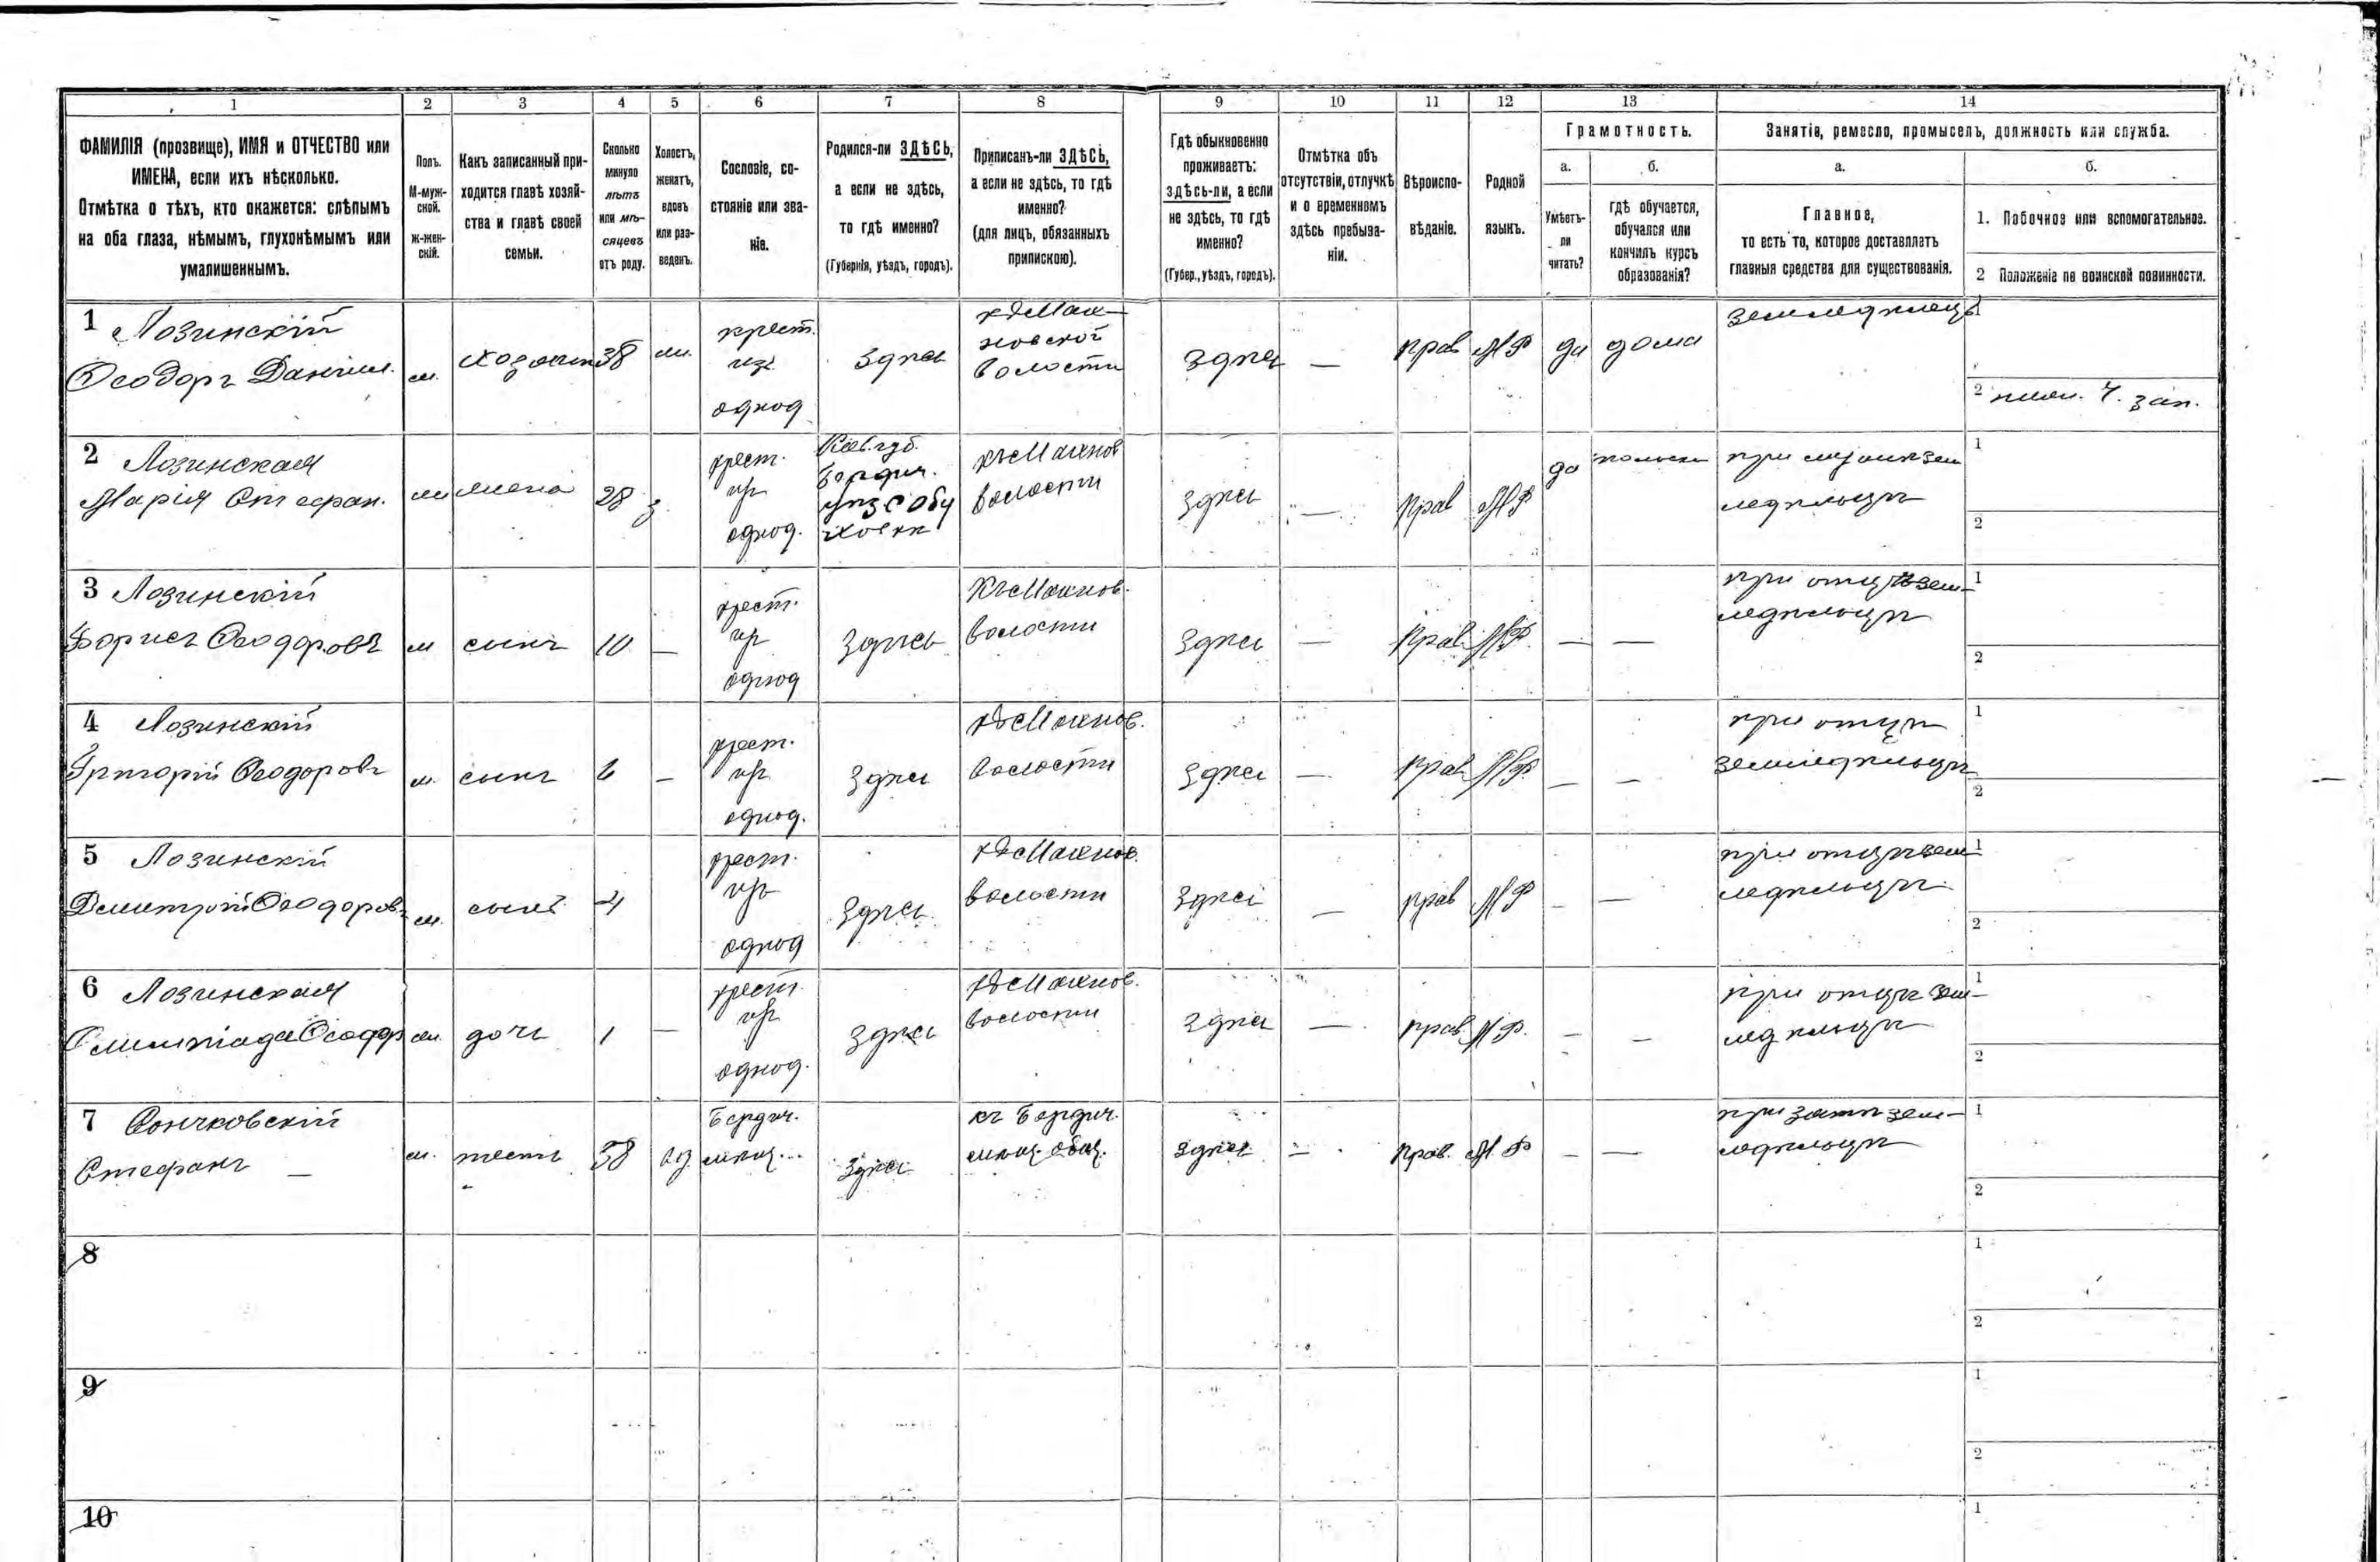 1 2 3 4 5 6 7 8 9 10 11 12 13 14
ФАМИЛІЯ (прозвище), ИМЯ и ОТЧЕСТВО или
ИМЕНА, если ихъ нѣсколько.
Отмѣтка о тѣхъ, кто окажется: слѣпымъ
на оба глаза, нѣмымъ, глухонѣмымъ или
умалишеннымъ.
Полъ.
М-муж-
ской.
ж-жен-
скій.
Какъ записанный при-
ходится главѣ хозяй-
ства и главѣ своей
семьи.
Сколько
минуло
лѣтъ
или мѣ-
сяцевъ
отъ роду.
Холостъ,
женатъ,
вдовъ
или раз-
веденъ.
Сословіе, со-
стояніе или зва-
ніе.
Родился-ли ЗДѢСЬ,
а если не здѣсь,
то гдѣ именно?
(Губернія, уѣздъ, городъ).
Приписанъ-ли ЗДѢСЬ,
а если не здѣсь, то гдѣ
именно?
(для лицъ, обязанныхъ
припискою).
Гдѣ обыкновенно
проживаетъ:
здѣсь-ли, а если
не здѣсь, то гдѣ
именно?
(Губер., уѣздъ, городъ).
Отмѣтка объ
отсутствіи, отлучкѣ
и о временномъ
здѣсь пребыва-
ніи.
Вѣроиспо-
вѣданіе.
Родной
языкъ.
Грамотность.
а.
Умѣетъ-
ли
читать?
б.
гдѣ обучается,
обучался или
кончилъ курсъ
образованія?
Занятіе, ремесло, промыселъ, должность или служба.
а.
Главное,
то есть то, которое доставляетъ
главныя средства для существованія.
б.
1. Побочное или вспомогательное.
2 Положеніе по воинской повинности.
1 Лозинскій
Ѳеодоръ Даніил.
м.
хозяин
38
ж.
крест.
изъ
однод
здѣсь
волости
здѣсь
—
прав
да
дома
земледѣлецъ
1
2
2 Лозинская
Марія Стефан.
жена
28
з
крест.
изъ
однод.
Кіев. губ.
Бердич.
волости
здѣсь
—
прав
да
1
ледѣльцѣ
2
3 Лозинскій
Борисъ Ѳеодоровъ
м
сынъ
10
—
крест.
изъ
однод
здѣсь
волости
здѣсь
—
прав
—
—
при отцѣ зем-
ледѣльцѣ
1
2
4 Лозинскій
Григорій Ѳеодоровъ
м.
сынъ
6
—
крест.
изъ
однод.
здѣсь
волости
здѣсь
—
прав
—
—
при отцѣ
земледѣльцѣ
1
2
5 Лозинскій
Дмитрій Ѳеодоровъ
м.
сынъ
4
крест.
изъ
однод
здѣсь
волости
здѣсь
—
прав
—
—
при отцѣ зем-
ледѣльцѣ
1
2
6 Лозинская
ж.
дочь
1
—
крест.
изъ
однод.
здѣсь
волости
здѣсь
—
прав
—
—
при отцѣ зем-
ледѣльцѣ
1
2
7
Стефанъ —
м.
тесть
58
вд
Бердич.
мѣщ.
здѣсь
къ Бердич.
мѣщ. общ.
здѣсь
—
прав.
—
—
при зятѣ зем-
ледѣльцѣ
1
2
8
1
2
9
1
2
10
1